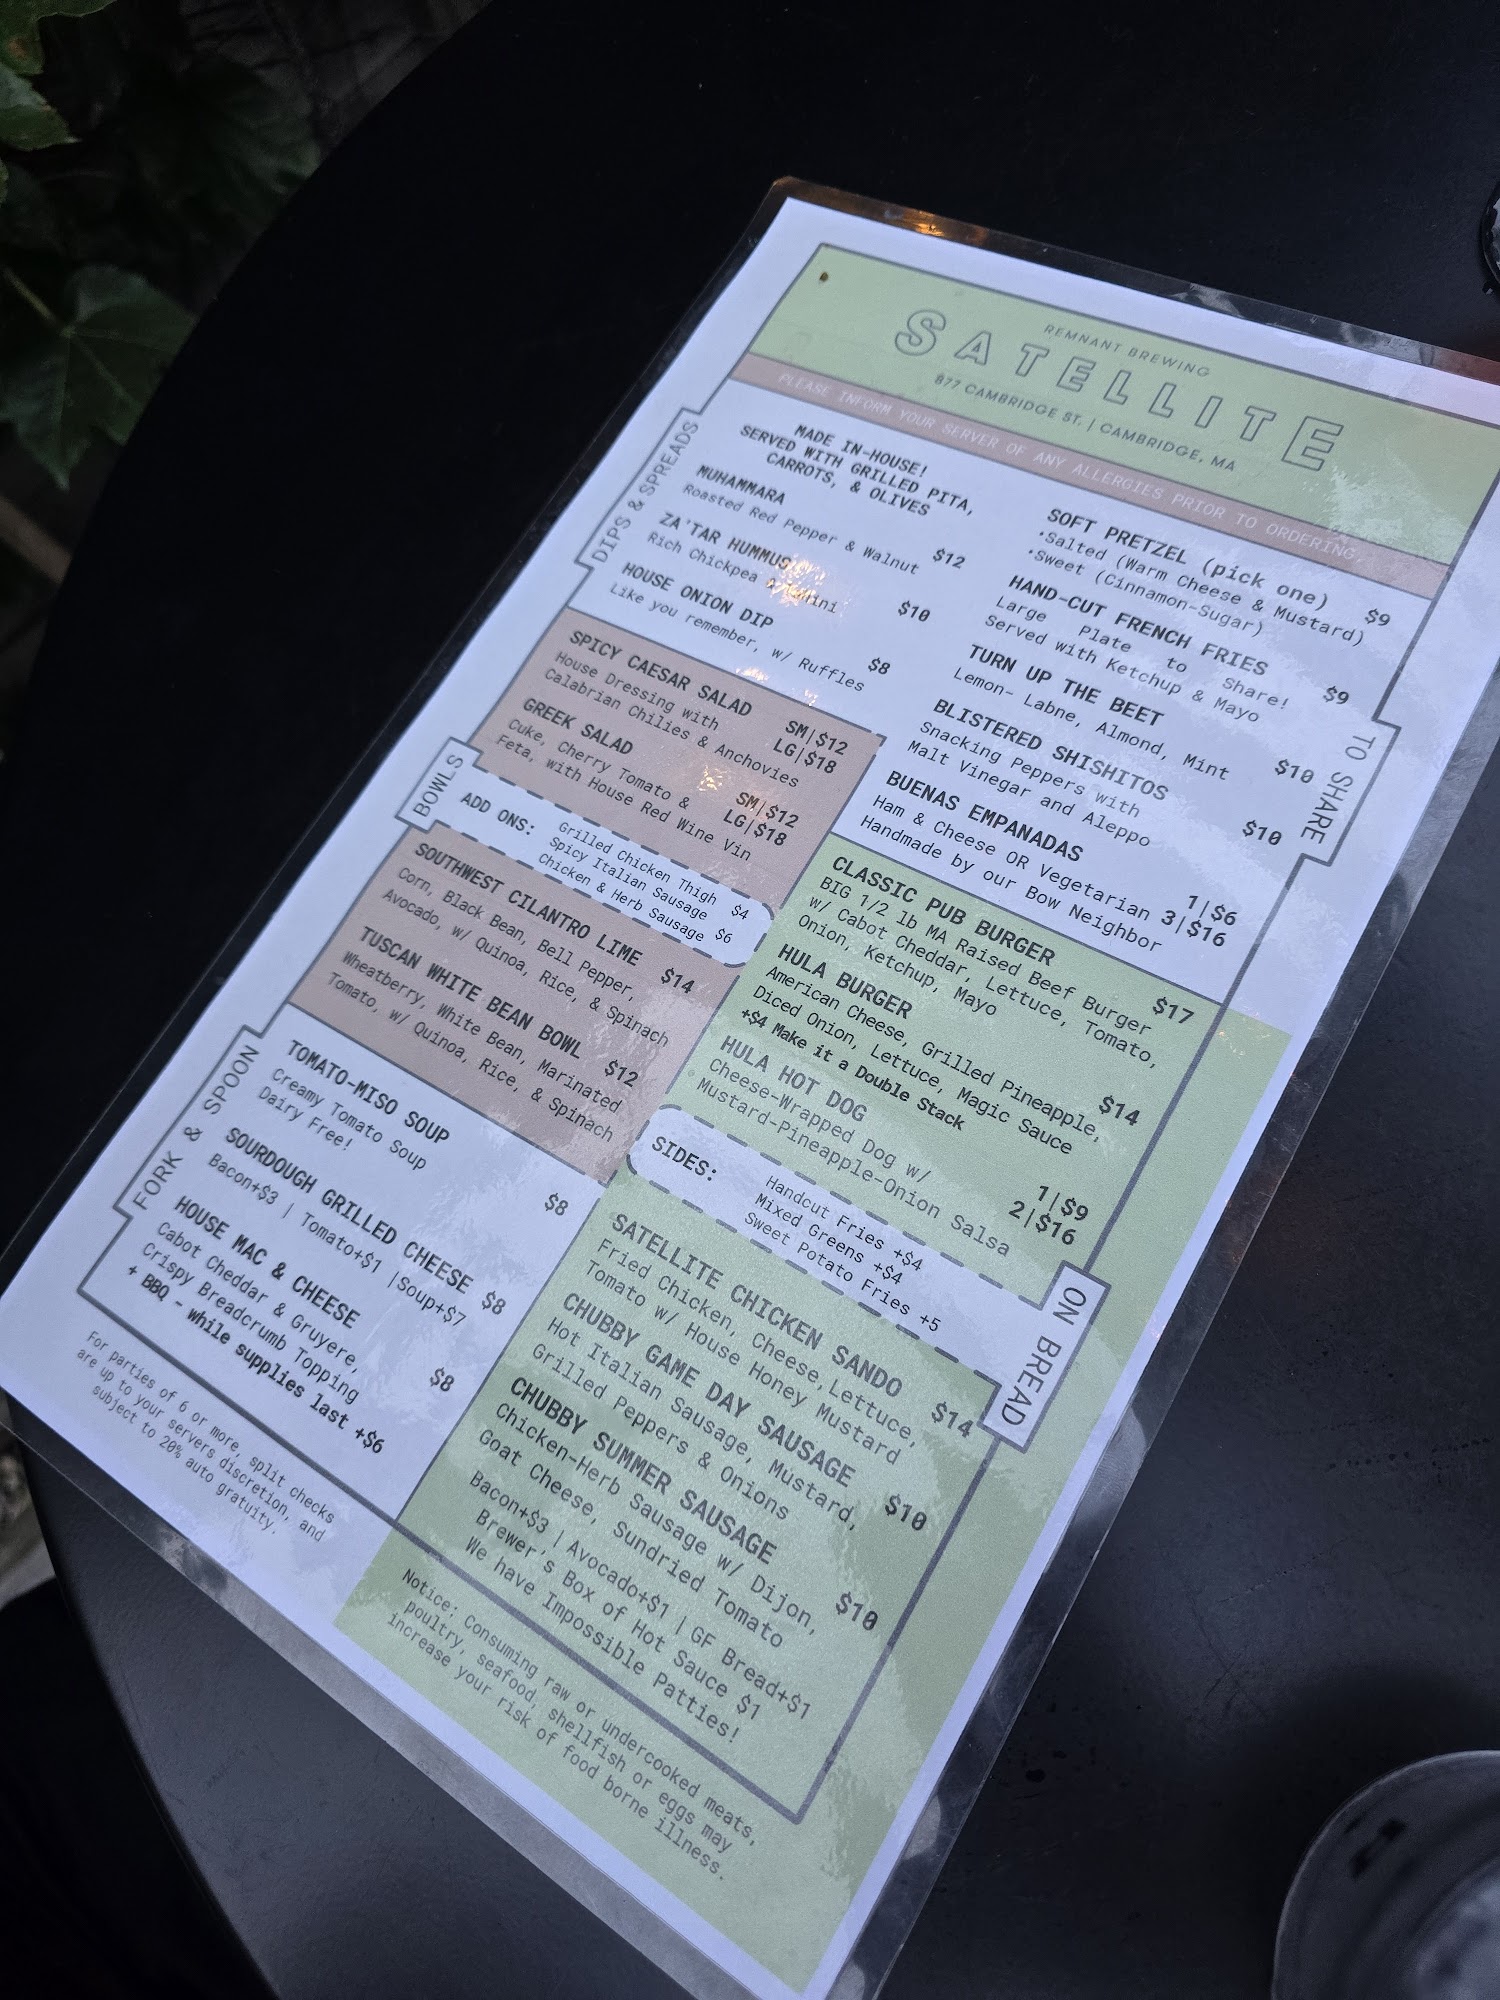 REMNANT BREWING
SATELLITE
877 CAMBRIDGE ST. | CAMBRIDGE, MA
PLEASE INFORM YOUR SERVER OF ANY ALLERGIES PRIOR TO ORDERING.
DIPS & SPREADS
MADE IN-HOUSE!
SERVED WITH GRILLED PITA,
CARROTS, & OLIVES
MUHAMMARA
Roasted Red Pepper & Walnut $12
ZA'TAR HUMMUS
Rich Chickpea & Tahini $10
HOUSE ONION DIP
Like you remember, w/ Ruffles $8
BOWLS
SPICY CAESAR SALAD
House Dressing with SM|$12
Calabrian Chilies & Anchovies LG|$18
GREEK SALAD
Cuke, Cherry Tomato & SM|$12
Feta, with House Red Wine Vin LG|$18
ADD ONS:
Grilled Chicken Thigh $4
Spicy Italian Sausage
Chicken & Herb Sausage $6
SOUTHWEST CILANTRO LIME
Corn, Black Bean, Bell Pepper, $14
Avocado, w/ Quinoa, Rice, & Spinach
TUSCAN WHITE BEAN BOWL
Wheatberry, White Bean, Marinated $12
Tomato, w/ Quinoa, Rice, & Spinach
FORK & SPOON
TOMATO-MISO SOUP
Creamy Tomato Soup
Dairy Free! $8
SOURDOUGH GRILLED CHEESE $8
Bacon+$3 | Tomato+$1 |Soup+$7
HOUSE MAC & CHEESE
Cabot Cheddar & Gruyere,
Crispy Breadcrumb Topping $8
+ BBQ - while supplies last +$6
For parties of 6 or more, split checks
are up to your servers discretion, and
subject to 20% auto gratuity.
TO SHARE
SOFT PRETZEL (pick one) $9
•Salted (Warm Cheese & Mustard)
•Sweet (Cinnamon-Sugar)
HAND-CUT FRENCH FRIES
Large Plate to Share! $9
Served with Ketchup & Mayo
TURN UP THE BEET
Lemon- Labne, Almond, Mint $10
BLISTERED SHISHITOS
Snacking Peppers with
Malt Vinegar and Aleppo $10
BUENAS EMPANADAS
Ham & Cheese OR Vegetarian 1|$6
Handmade by our Bow Neighbor 3|$16
ON BREAD
CLASSIC PUB BURGER
BIG 1/2 lb MA Raised Beef Burger $17
w/ Cabot Cheddar, Lettuce, Tomato,
Onion, Ketchup, Mayo
HULA BURGER
American Cheese, Grilled Pineapple, $14
Diced Onion, Lettuce, Magic Sauce
+$4 Make it a Double Stack
HULA HOT DOG
Cheese-Wrapped Dog w/ 1|$9
Mustard-Pineapple-Onion Salsa 2|$16
SIDES:
Handcut Fries +$4
Mixed Greens +$4
Sweet Potato Fries +5
SATELLITE CHICKEN SANDO
Fried Chicken, Cheese,Lettuce, $14
Tomato w/ House Honey Mustard
CHUBBY GAME DAY SAUSAGE
Hot Italian Sausage, Mustard, $10
Grilled Peppers & Onions
CHUBBY SUMMER SAUSAGE
Chicken-Herb Sausage w/ Dijon, $10
Goat Cheese, Sundried Tomato
Bacon+$3 | Avocado+$1 | GF Bread+$1
Brewer's Box of Hot Sauce $1
We have Impossible Patties!
Notice: Consuming raw or undercooked meats,
poultry, seafood, shellfish or eggs may
increase your risk of food borne illness.